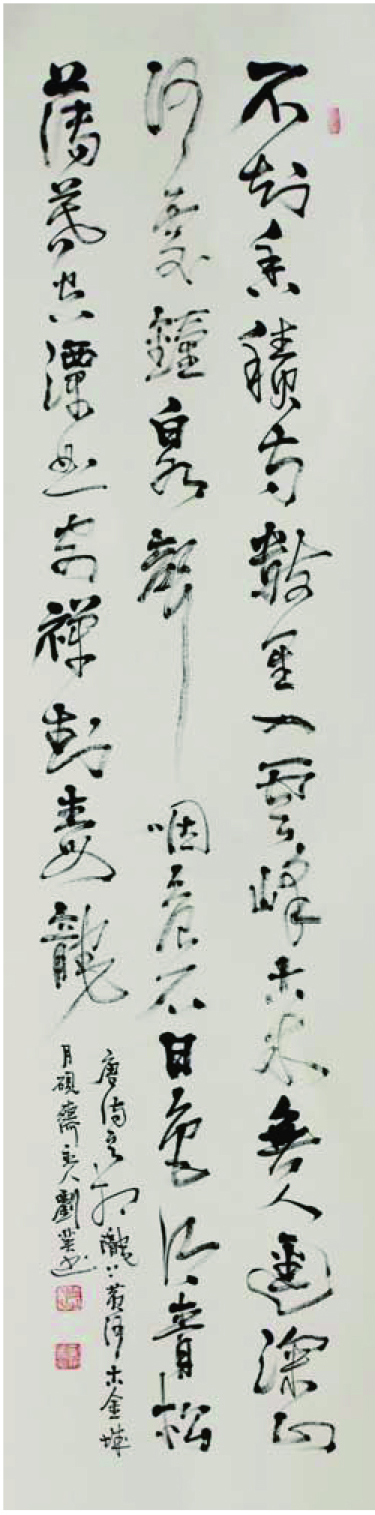 不知香積寺數里入雲峰古木無人徑深山
何處鐘泉聲咽危石日色冷青松
薄暮空潭曲安禪制毒龍
唐詩 黃河古金城
月硯齋主人劉